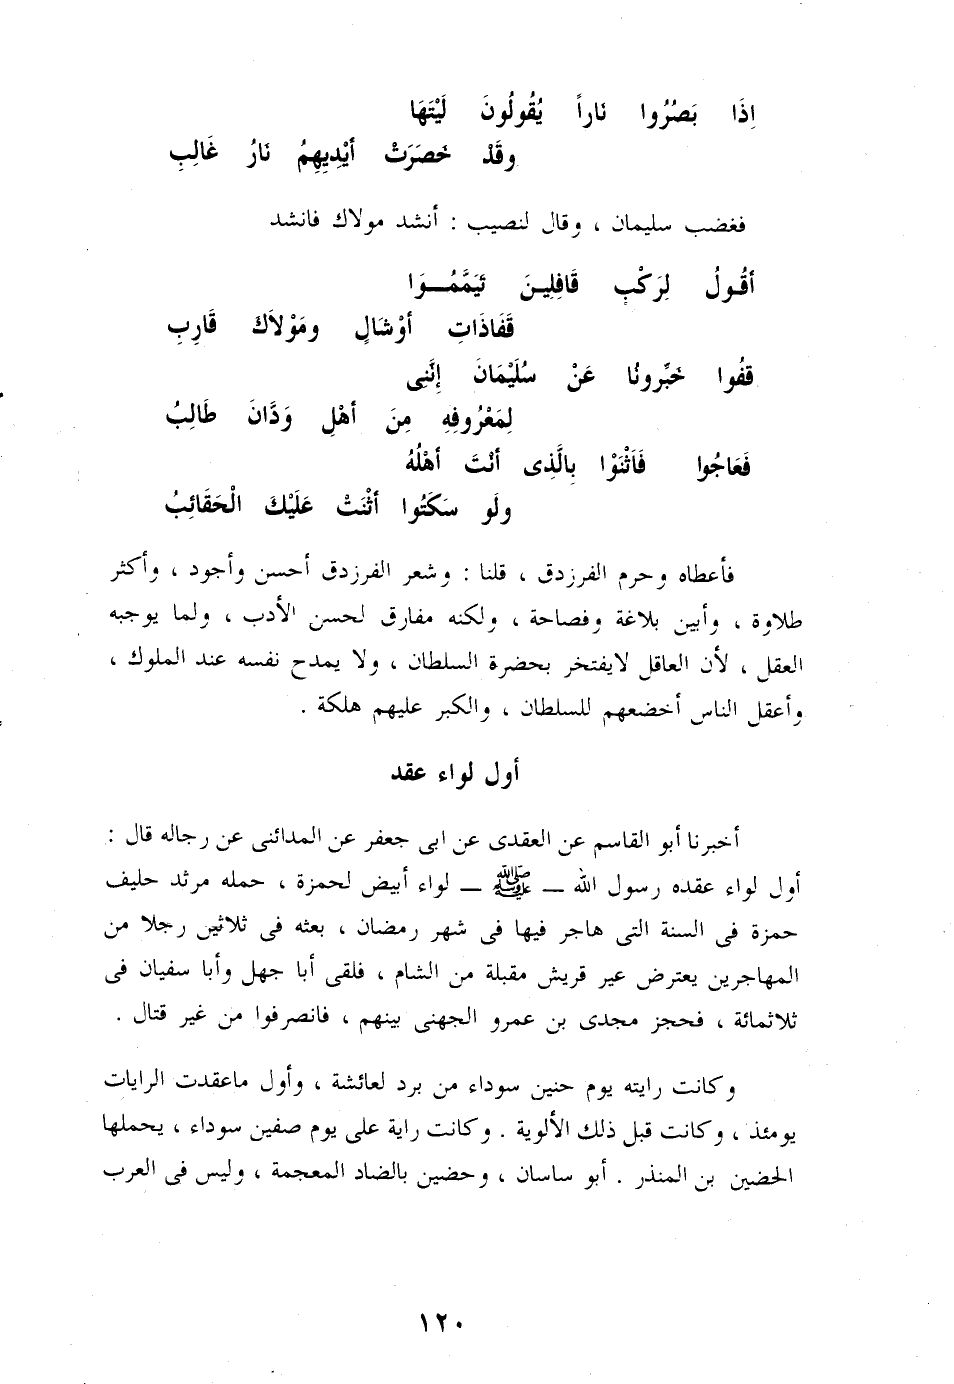 إِذَا بَصُرُوا نَاراً يُقُولُونَ لَيْتَهَا
وقَدْ خَصَرَتْ أيْدِيهِمُ نَارُ غَالِبِ
فغضب سليمان ، وقال لنصيب : أنشد مولاك فانشد
أقُولُ لِرَكْبٍ قَافِلِينَ تَيَمَّمُـوَا
قَفَاذَاتِ أوْشَالٍ ومَوْلاَكَ قَارِبِ
قفُوا خَبِّرونُا عَنْ سُلَيْمَانَ إِنَّنِى
لِمَعْرُوفِهِ مِنَ أهْلِ وَدَّانَ طَالِبُ
فَعَاجُوا فَاَثْنَوْا بِالَّذِى أنْتَ أهْلُهُ
ولَو سَكَتُوا أثْنَتْ عَلَيْكَ الْحَقَائِبُ
فأعطاه وحرم الفرزدق ، قلنا : وشعر الفرزدق أحسن وأجود ، وأكثر
طلاوة ، وأبين بلاغة وفصاحة ، ولكنه مفارق لحسن الأدب ، ولما يوجبه
العقل ، لأن العاقل لايفتخر بحضرة السلطان ، ولا يمدح نفسه عند الملوك ،
وأعقل الناس أخضعهم للسلطان ، والكبر عليهم هلكة .
أول لواء عقد
أخبرنا أبو القاسم عن العقدى عن ابى جعفر عن المدائنى عن رجاله قال :
أول لواء عقده رسول الله ــ ﷺ ــ لواء أبيض لحمزة ، حمله مرثد حليف
حمزة فى السنة التى هاجر فيها فى شهر رمضان ، بعثه فى ثلاثين رجلا من
المهاجرين يعترض عير قريش مقبلة من الشام ، فلقى أبا جهل وأبا سفيان فى
ثلاثمائة ، فحجز مجدى بن عمرو الجهنى بينهم ، فانصرفوا من غير قتال .
وكانت رايته يوم حنين سوداء من برد لعائشة ، وأول ماعقدت الرايات
يومئذ ، وكانت قبل ذلك الألوية . وكانت راية على يوم صفين سوداء ، يحملها
الحضين بن المنذر . أبو ساسان ، وحضين بالضاد المعجمة ، وليس فى العرب
١٢٠